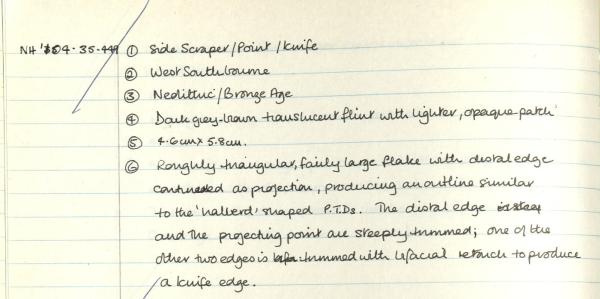 NH '84·35·449 ① Side Scraper/Point/Knife
② West Southbourne
③ Neolithic/Bronze Age
④ Dark grey-brown translucent flint with lighter, opaque patch
⑤ 4.6cm x 5.8cm.
⑥ Roughly triangular, fairly large flake with distal edge
continued as projection, producing an outline similar
to the 'halberd' shaped P.T.Ds. The distal edge
and the projecting point are steeply trimmed; one of the
other two edges is trimmed with bifacial retouch to produce
a knife edge.